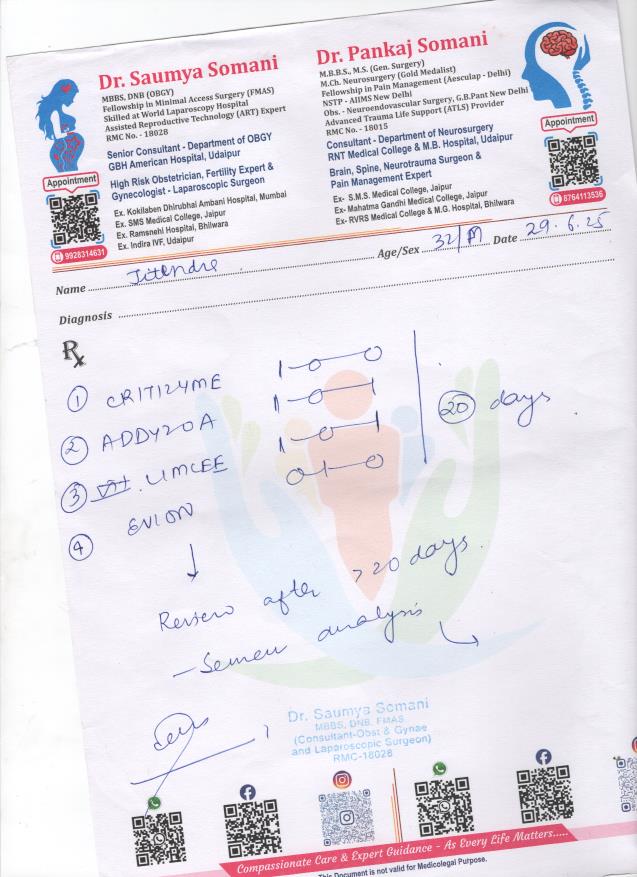 Dr. Saumya Somani
MBBS, DNB (OBGY)
Fellowship in Minimal Access Surgery (FMAS)
Skilled at World Laparoscopy Hospital
Assisted Reproductive Technology (ART) Expert
RMC No. - 18028
Senior Consultant - Department of OBGY
GBH American Hospital, Udaipur
High Risk Obstetrician, Fertility Expert &
Gynecologist - Laparoscopic Surgeon
Ex. Kokilaben Dhirubhai Ambani Hospital, Mumbai
Ex. SMS Medical College, Jaipur
Ex. Ramsnehi Hospital, Bhilwara
Ex. Indira IVF, Udaipur
Appointment
9928314631
Dr. Pankaj Somani
M.B.B.S., M.S. (Gen. Surgery)
M.Ch. Neurosurgery (Gold Medalist)
Fellowship in Pain Management (Aesculap - Delhi)
NSTP - AIIMS New Delhi
Obs. - Neuroendovascular Surgery, G.B.Pant New Delhi
Advanced Trauma Life Support (ATLS) Provider
RMC No. - 18015
Consultant - Department of Neurosurgery
RNT Medical College & M.B. Hospital, Udaipur
Brain, Spine, Neurotrauma Surgeon &
Pain Management Expert
Ex- S.M.S. Medical College, Jaipur
Ex- Mahatma Gandhi Medical College, Jaipur
Ex- RVRS Medical College & M.G. Hospital, Bhilwara
Appointment
8764113536
Name Jitendre Age/Sex 32/M Date 29.6.25
Diagnosis
Rx
1 CRITIZYME 1-0-0
2 ADDYZOA 1-0-1
3 LIMCEE 1-0-1
4 EVION 0-1-0
20 days
Review after >20 days.
- Semen analysis
Dr. Saumya Somani
MBBS, DNB, FMAS
(Consultant-Obst & Gynae
and Laparoscopic Surgeon)
RMC-18028
Compassionate Care & Expert Guidance - As Every Life Matters.....
This Document is not valid for Medicolegal Purpose.